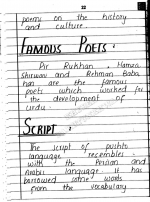 22
poems on the history
and culture.
FAMOUS POETS:
Pir Rukhan, Hamza
Shinwari and Rehman Baba
are the famous
poets which worked for
the development of
urdu.
SCRIPT:
The script of pushto
language resembles
with the Persian and
Arabic language. It has
borrowed some words
from the vocabulary